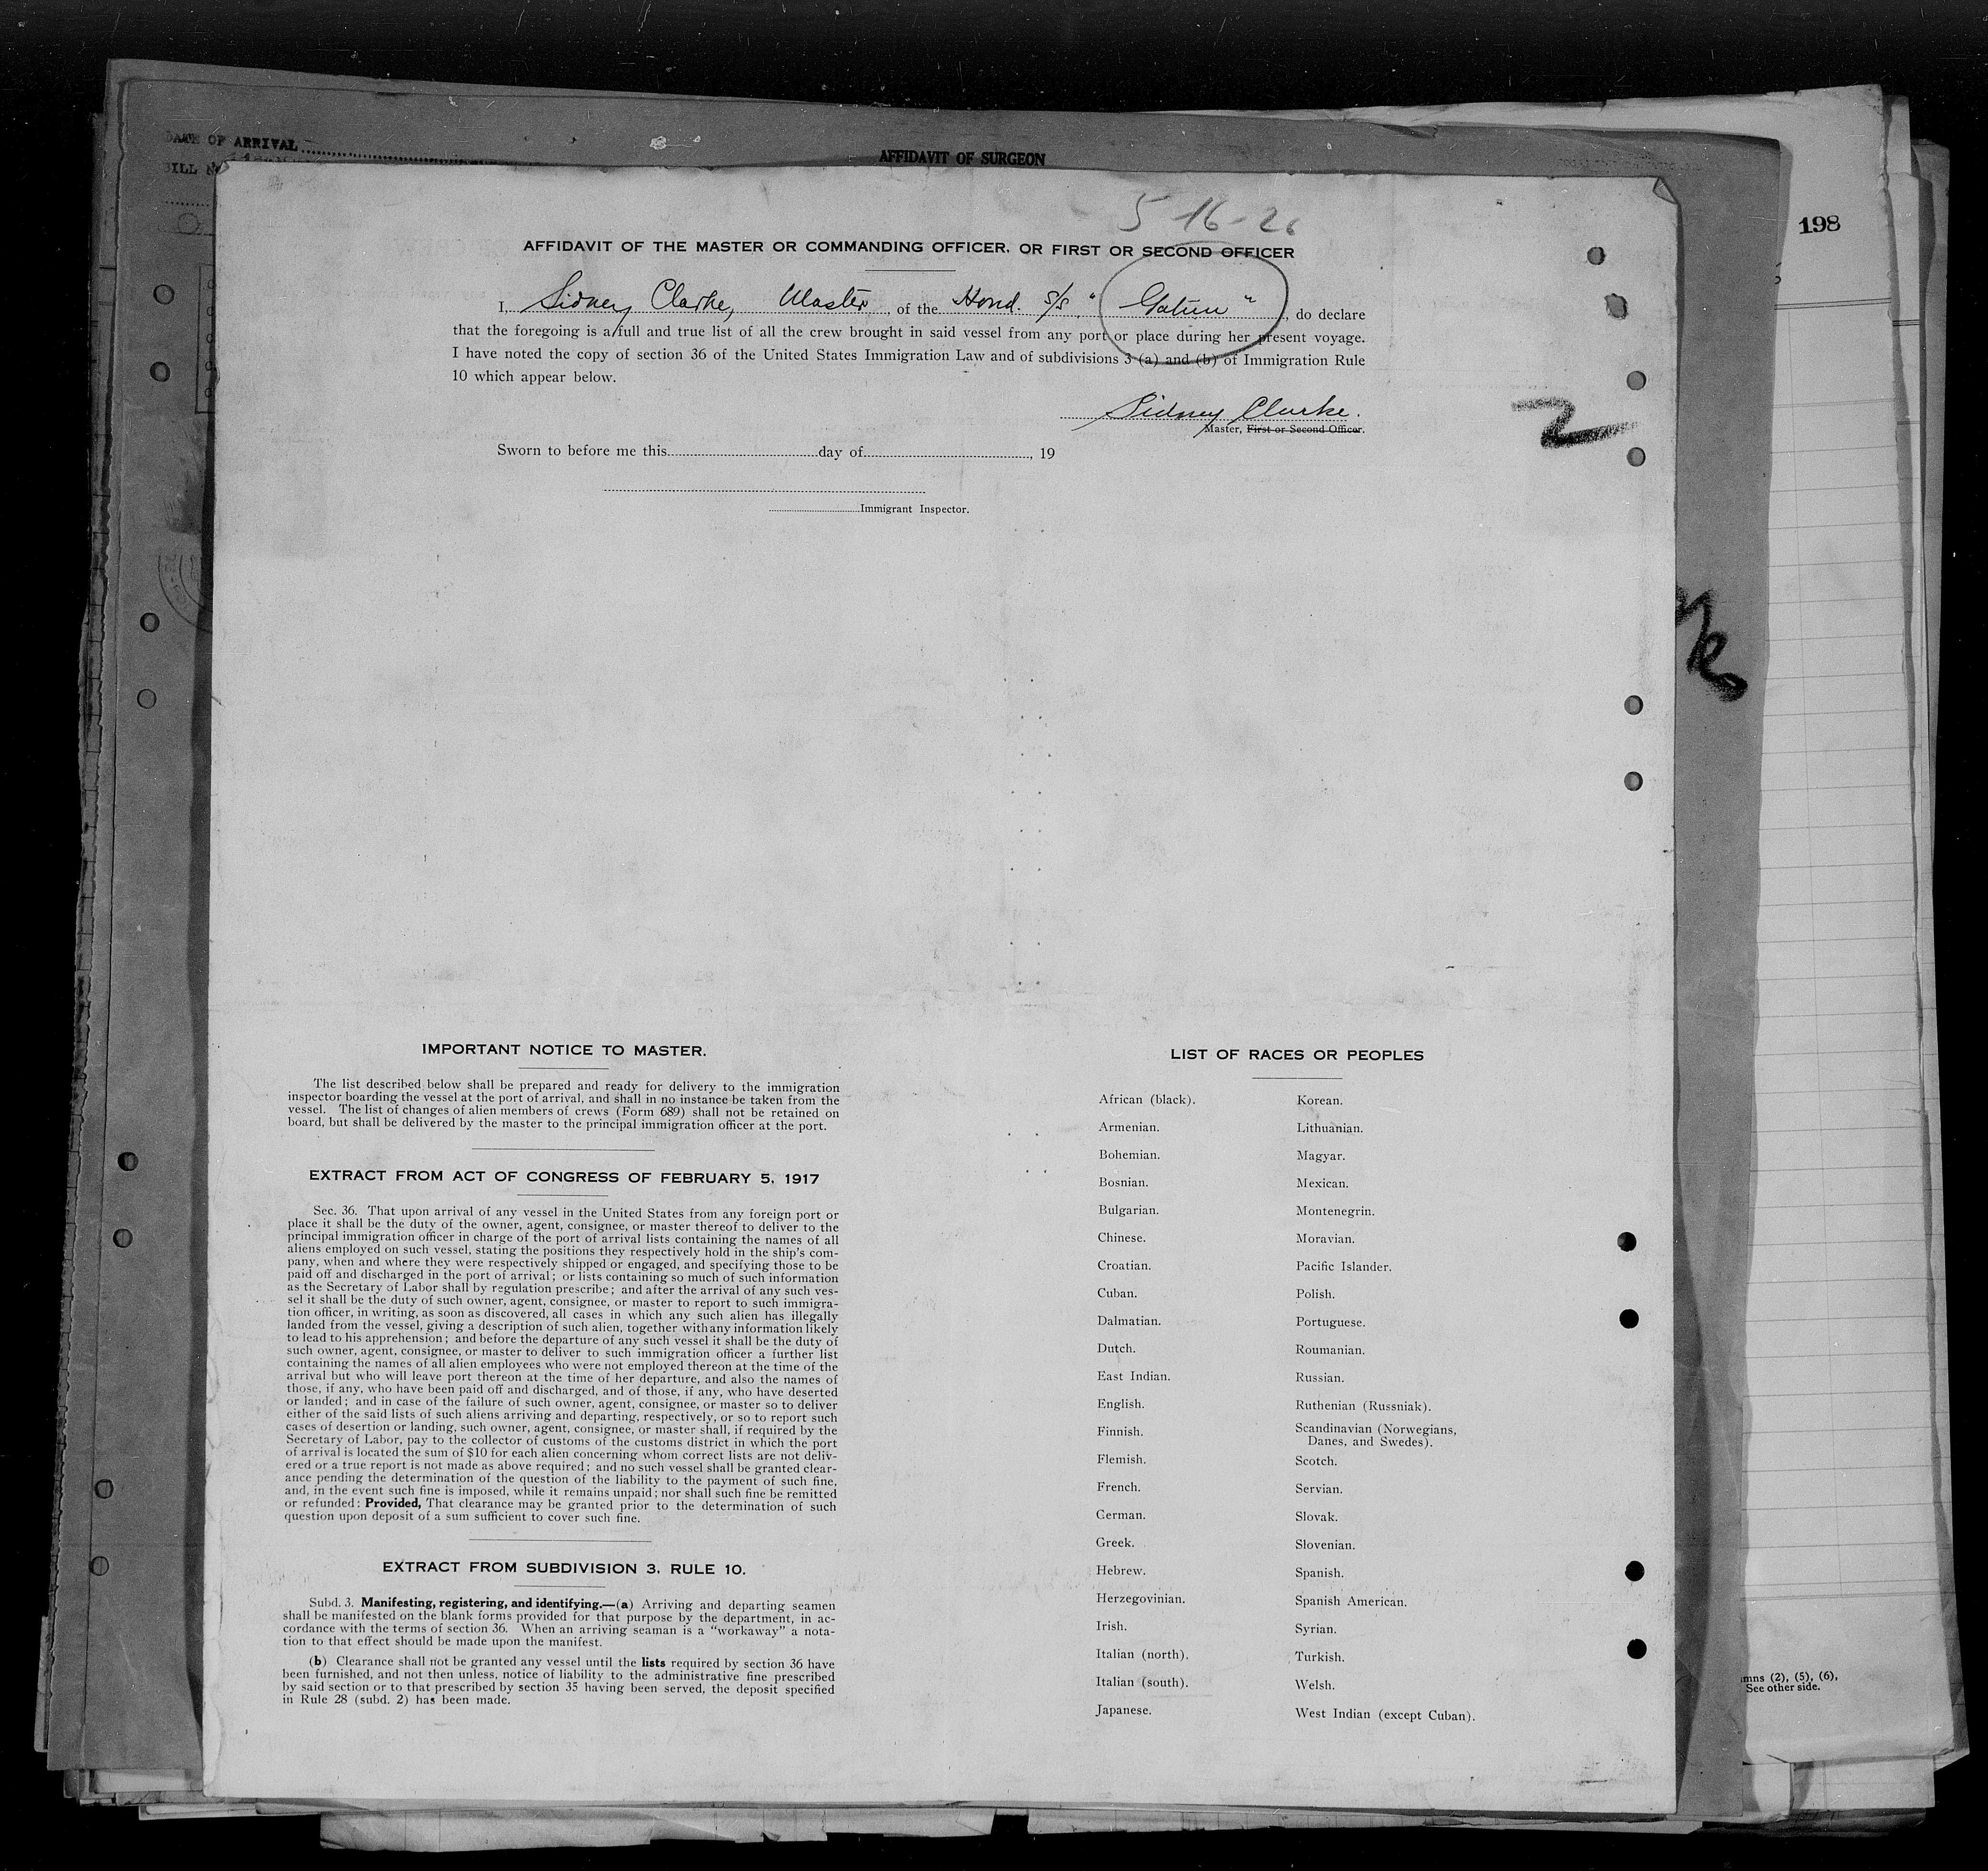 DATE OF ARRIVAL
BILL
AFFIDAVIT OF SURGEON
198
5-16-26
AFFIDAVIT OF THE MASTER OR COMMANDING OFFICER, OR FIRST OR SECOND OFFICER
I, Sidney Clarke, Master, of the Hond. s/s, "Gatun", do declare
that the foregoing is a full and true list of all the crew brought in said vessel from any port or place during her present voyage.
I have noted the copy of section 36 of the United States Immigration Law and of subdivisions 3 (a) and (b) of Immigration Rule
10 which appear below.
Sidney Clarke.
Master, First or Second Officer.
2
Sworn to before me this day of , 19
Immigrant Inspector.
IMPORTANT NOTICE TO MASTER.
The list described below shall be prepared and ready for delivery to the immigration
inspector boarding the vessel at the port of arrival, and shall in no instance be taken from the
vessel. The list of changes of alien members of crews (Form 689) shall not be retained on
board, but shall be delivered by the master to the principal immigration officer at the port.
EXTRACT FROM ACT OF CONGRESS OF FEBRUARY 5, 1917
Sec. 36. That upon arrival of any vessel in the United States from any foreign port or
place it shall be the duty of the owner, agent, consignee, or master thereof to deliver to the
principal immigration officer in charge of the port of arrival lists containing the names of all
aliens employed on such vessel, stating the positions they respectively hold in the ship's com-
pany, when and where they were respectively shipped or engaged, and specifying those to be
paid off and discharged in the port of arrival; or lists containing so much of such information
as the Secretary of Labor shall by regulation prescribe; and after the arrival of any such ves-
sel it shall be the duty of such owner, agent, consignee, or master to report to such immigra-
tion officer, in writing, as soon as discovered, all cases in which any such alien has illegally
landed from the vessel, giving a description of such alien, together with any information likely
to lead to his apprehension; and before the departure of any such vessel it shall be the duty of
such owner, agent, consignee, or master to deliver to such immigration officer a further list
containing the names of all alien employees who were not employed thereon at the time of the
arrival but who will leave port thereon at the time of her departure, and also the names of
those, if any, who have been paid off and discharged, and of those, if any, who have deserted
or landed; and in case of the failure of such owner, agent, consignee, or master so to deliver
either of the said lists of such aliens arriving and departing, respectively, or so to report such
cases of desertion or landing, such owner, agent, consignee, or master shall, if required by the
Secretary of Labor, pay to the collector of customs of the customs district in which the port
of arrival is located the sum of $10 for each alien concerning whom correct lists are not deliv-
ered or a true report is not made as above required; and no such vessel shall be granted clear-
ance pending the determination of the question of the liability to the payment of such fine,
and, in the event such fine is imposed, while it remains unpaid; nor shall such fine be remitted
or refunded: Provided, That clearance may be granted prior to the determination of such
question upon deposit of a sum sufficient to cover such fine.
EXTRACT FROM SUBDIVISION 3, RULE 10.
Subd. 3. Manifesting, registering, and identifying.—(a) Arriving and departing seamen
shall be manifested on the blank forms provided for that purpose by the department, in ac-
cordance with the terms of section 36. When an arriving seaman is a "workaway" a nota-
tion to that effect should be made upon the manifest.
(b) Clearance shall not be granted any vessel until the lists required by section 36 have
been furnished, and not then unless, notice of liability to the administrative fine prescribed
by said section or to that prescribed by section 35 having been served, the deposit specified
in Rule 28 (subd. 2) has been made.
LIST OF RACES OR PEOPLES
African (black).
Armenian.
Bohemian.
Bosnian.
Bulgarian.
Chinese.
Croatian.
Cuban.
Dalmatian.
Dutch.
East Indian.
English.
Finnish.
Flemish.
French.
German.
Greek.
Hebrew.
Herzegovinian.
Irish.
Italian (north).
Italian (south).
Japanese.
Korean.
Lithuanian.
Magyar.
Mexican.
Montenegrin.
Moravian.
Pacific Islander.
Polish.
Portuguese.
Roumanian.
Russian.
Ruthenian (Russniak).
Scandinavian (Norwegians,
Danes, and Swedes).
Scotch.
Servian.
Slovak.
Slovenian.
Spanish.
Spanish American.
Syrian.
Turkish.
Welsh.
West Indian (except Cuban).
mns (2), (5), (6),
See other side.